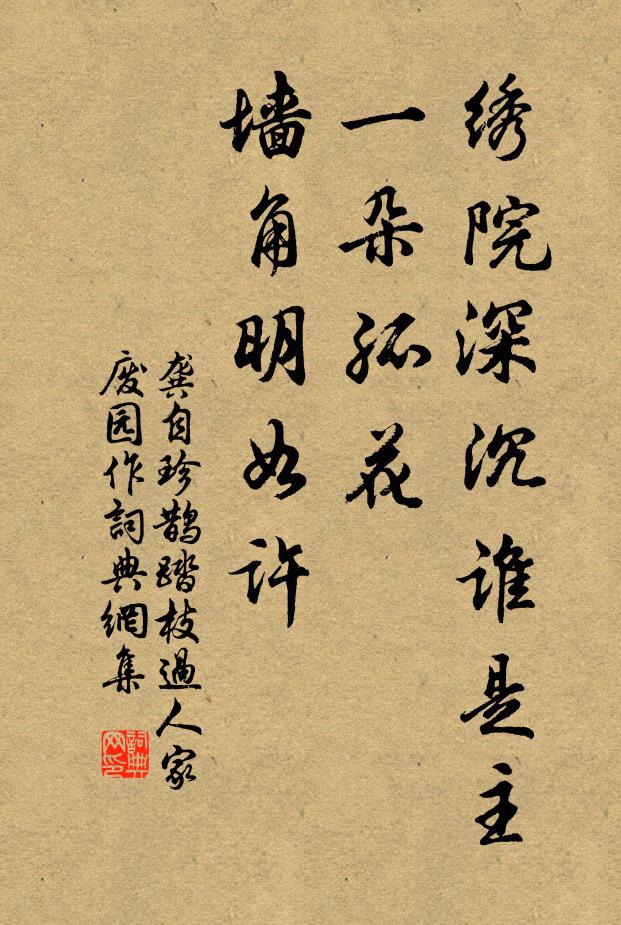 绣院深沉谁是主
一朵孤花
墙角明如许
龚自珍鹊踏枝過人家
废园作詞典網集
詞典网印